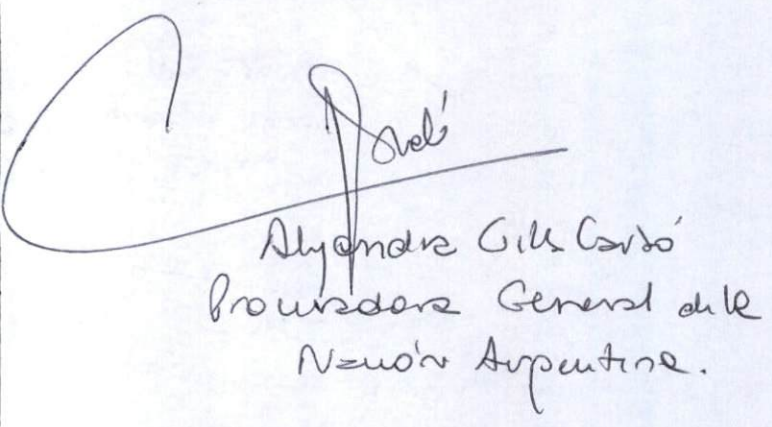 Alejandra Gils Carbó
Procuradora General de la
Nación Argentina.